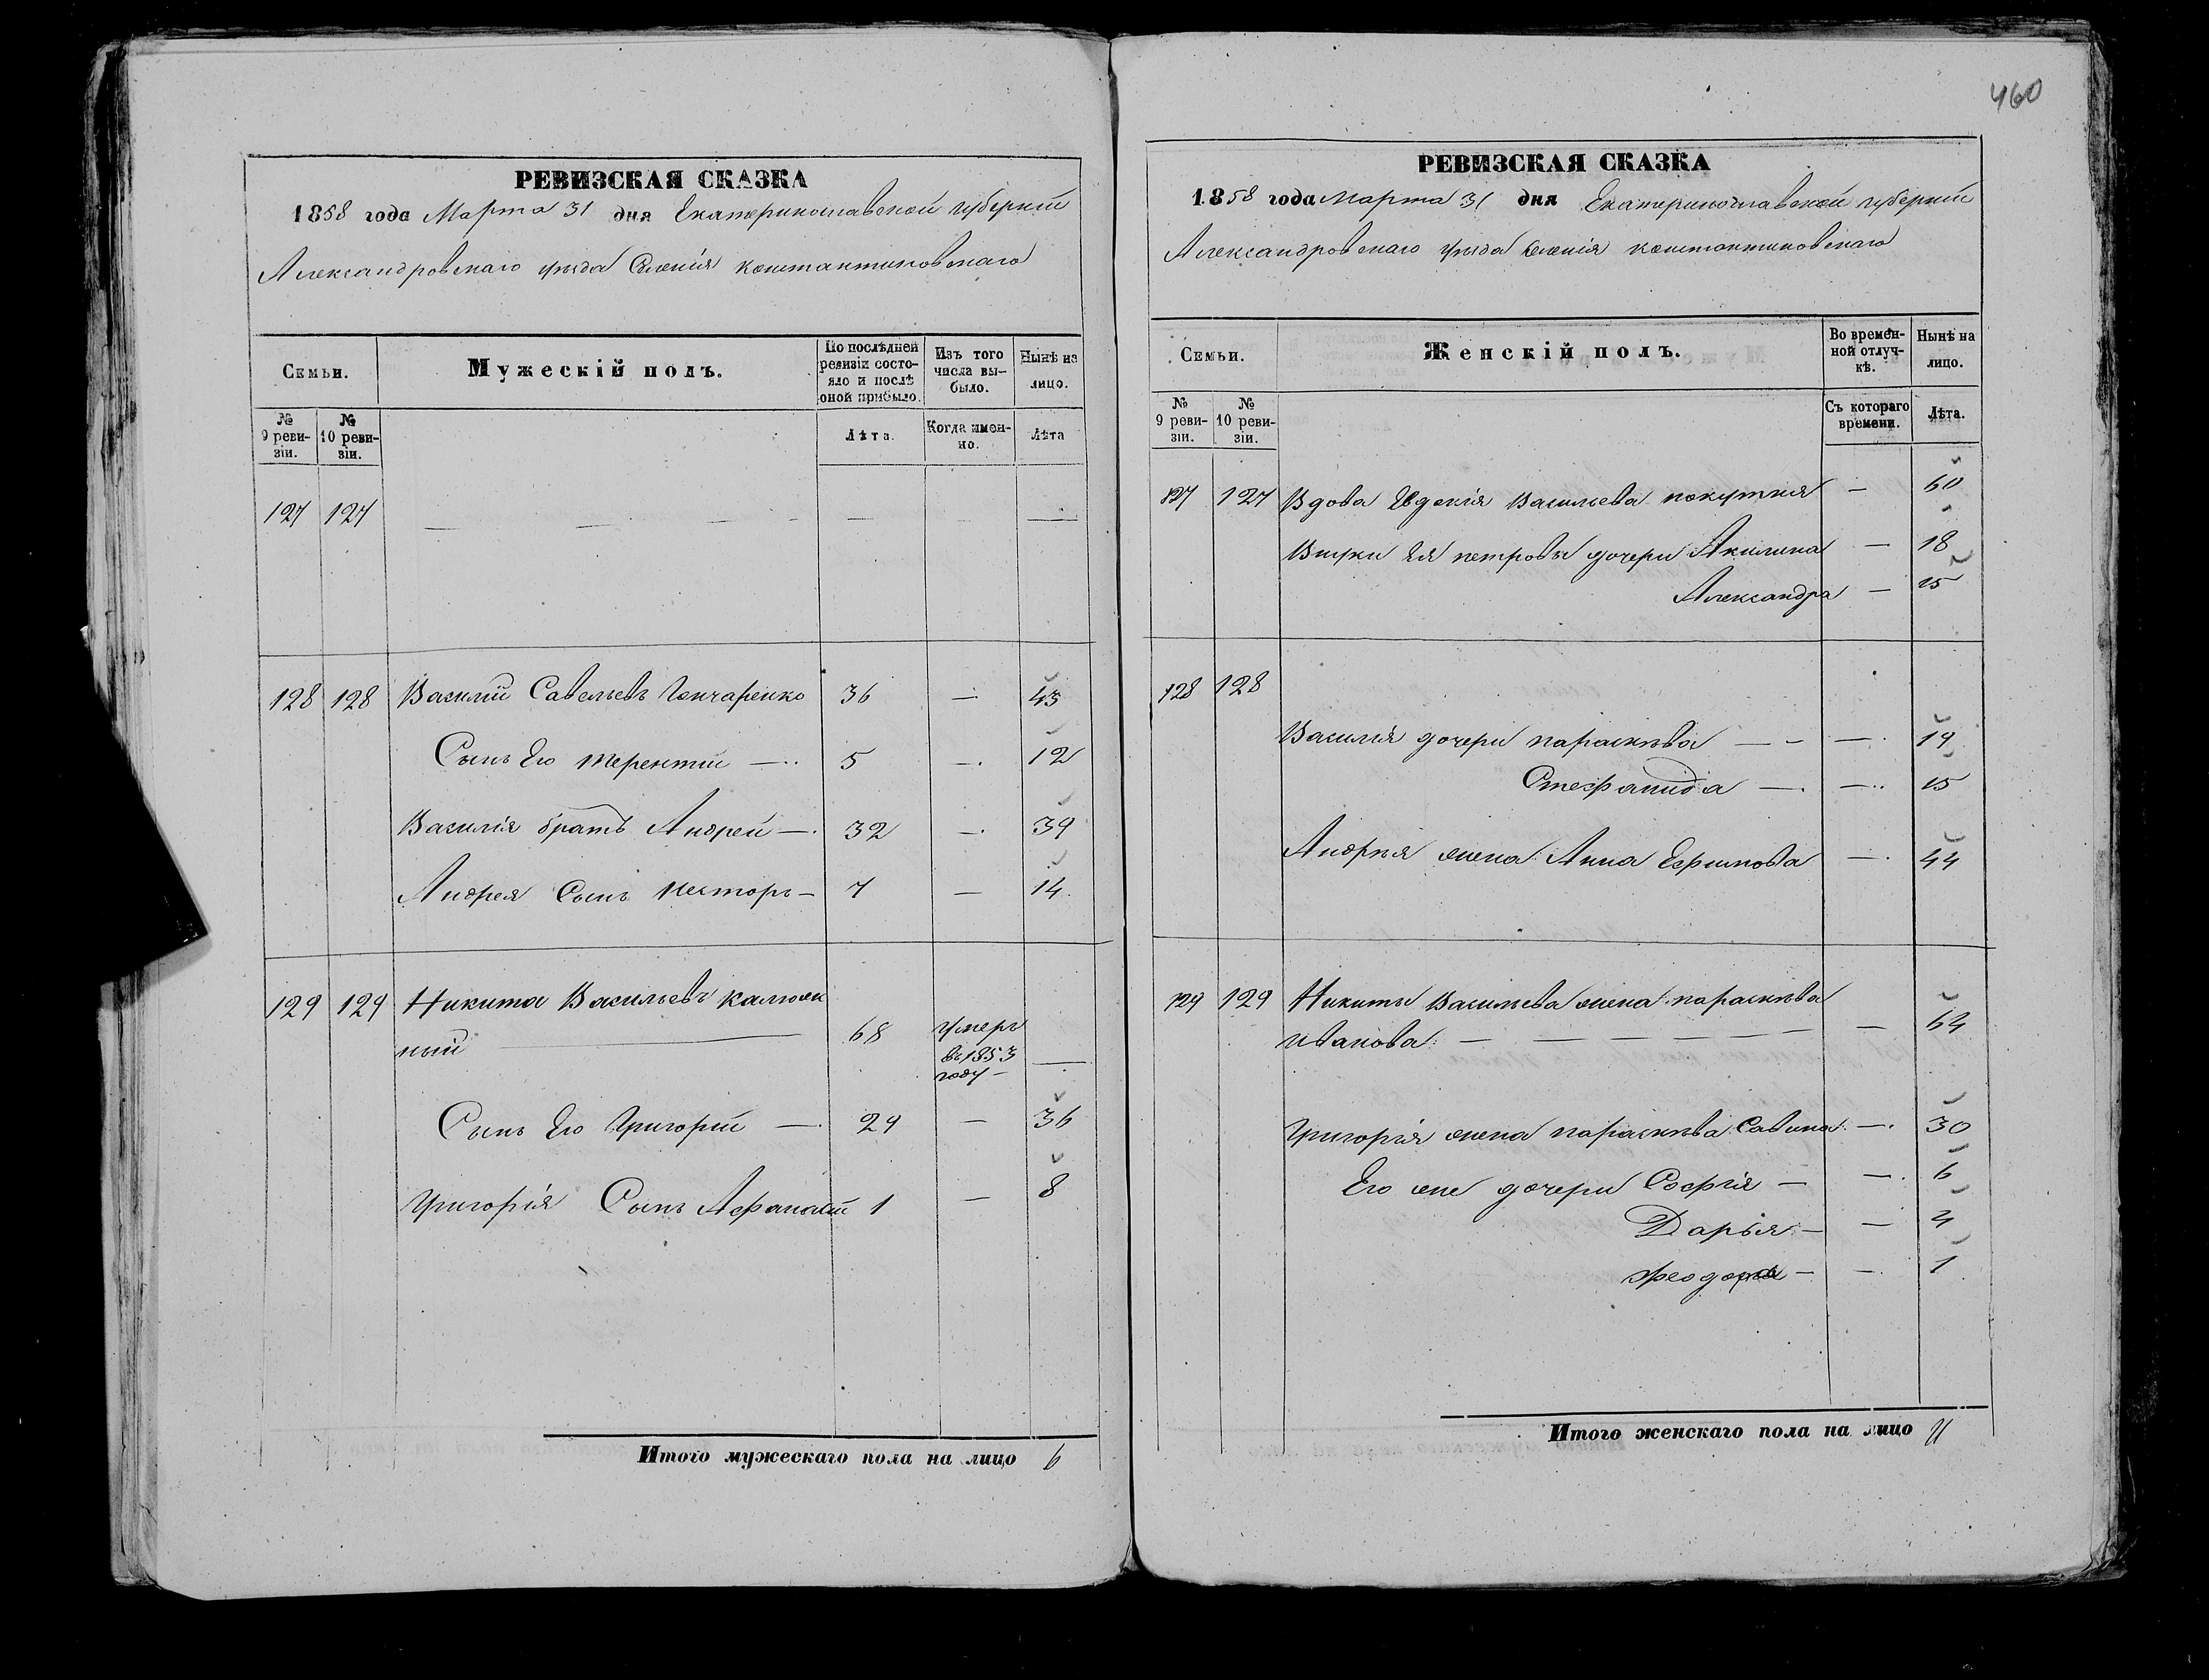 460
РЕВИЗСКАЯ СКАЗКА
1858 года Марта 31 дня Екатеринославской губерніи
Александровскаго уѣзда Селенія Константиновскаго
Семьи.
Мужескій полъ.
По послѣдней ревизіи состояло и послѣ оной прибыло.
Изъ того числа выбыло.
Нынѣ на лицо.
№ 9 ревизіи.
№ 10 ревизіи.
Лѣта.
Когда именно.
Лѣта
127 127 — — — — — — —
128 128 Василій Савельевъ Гончаренко 36 — 43
Сынъ Его Терентій — 5 — 12
Василія братъ Андрей — 32 — 39
Андрея Сынъ Несторъ — 7 — 14
129 129 Никита Васильевъ Калюж
ный 68 умеръ въ 1853 году — —
Сынъ Его Григорій — 29 — 36
Григорія Сынъ Афанасій 1 — 8
Итого мужескаго пола на лицо 6
РЕВИЗСКАЯ СКАЗКА
1858 года Марта 31 дня Екатеринославской губерніи
Александровскаго уѣзда Селенія Константиновскаго
Семьи.
Женскій полъ.
Во временной отлучкѣ.
Нынѣ на лицо.
№ 9 ревизіи.
№ 10 ревизіи.
Съ котораго времени.
Лѣта.
127 127 Вдова Евдокія Васильева — 60
Внуки Ея Петровы дочери Акилина — 18
Александра — 15
128 128
Василія дочери Параскѣва — — — 19
Стефанида — — 15
Андрѣя жена Анна Ефимова — 44
129 129 Никиты Васильева жена Параскѣва
Иванова — — — — — — 64
Григорія жена Параскѣва Савина — 30
Его же дочери Софія — — 6
Дарья — — 4
Феодора — — 1
Итого женскаго пола на лицо 11